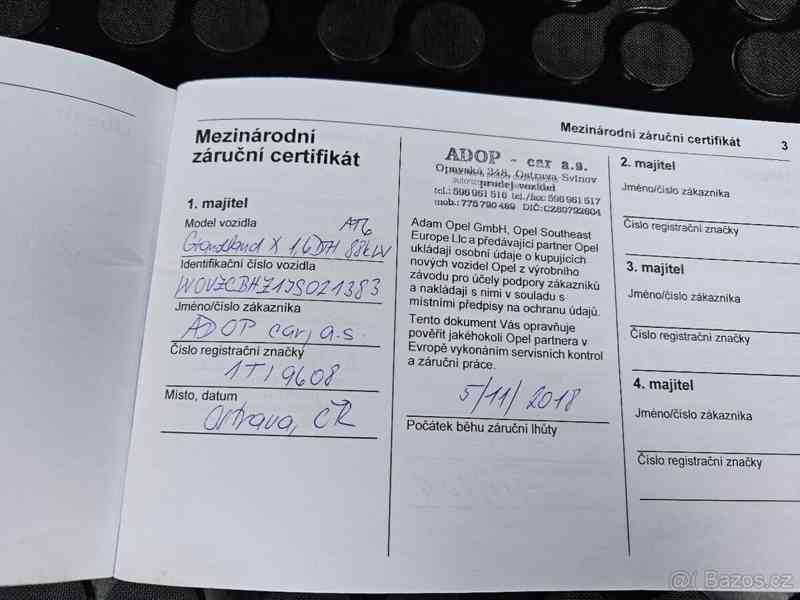 Mezinárodní záruční certifikát 3
Mezinárodní
záruční certifikát
1. majitel
Model vozidla
AT6
Grandland X 1,6DTH 88kW
Identifikační číslo vozidla
W0VZCBHZ1JS021383
Jméno/číslo zákazníka
ADOP car, a.s.
Číslo registrační značky
1TI 9608
Místo, datum
Ostrava, ČR
ADOP - car a.s.
Opavská 348, Ostrava Svinov
prodej vozidel
tel.: 596 961 516 tel./fax: 596 961 517
mob.: 775 790 489 DIČ: CZ60792604
Adam Opel GmbH, Opel Southeast
Europe Llc a předávající partner Opel
ukládají osobní údaje o kupujících
nových vozidel Opel z výrobního
závodu pro účely podpory zákazníků
a nakládají s nimi v souladu s
místními předpisy na ochranu údajů.
Tento dokument Vás opravňuje
pověřit jakéhokoli Opel partnera v
Evropě vykonáním servisních kontrol
a záruční práce.
5/11/2018
Počátek běhu záruční lhůty
2. majitel
Jméno/číslo zákazníka
Číslo registrační značky
3. majitel
Jméno/číslo zákazníka
Číslo registrační značky
4. majitel
Jméno/číslo zákazníka
Číslo registrační značky
@l Bazos.cz